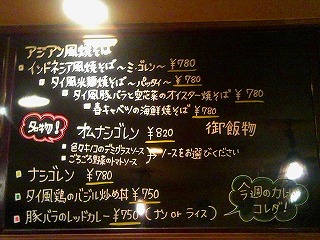 アジアン風焼そば
インドネシア風焼そば～ミーゴレン～ ¥780
タイ風米麺焼そば～パッタイ～ ¥780
タイ風豚バラと空芯菜のオイスター焼そば ¥780
春キャベツの海鮮焼そば ¥780
名物！ オムナシゴレン ¥820 御飯物
色々キノコのデミグラスソース
ごろごろ野菜のトマトソース
ソースをお選びください
ナシゴレン ¥780
タイ風鶏のバジル炒め丼 ¥750
豚バラのレッドカレー ¥750 (ナン or ライス)
今週のカレー
コレダ！